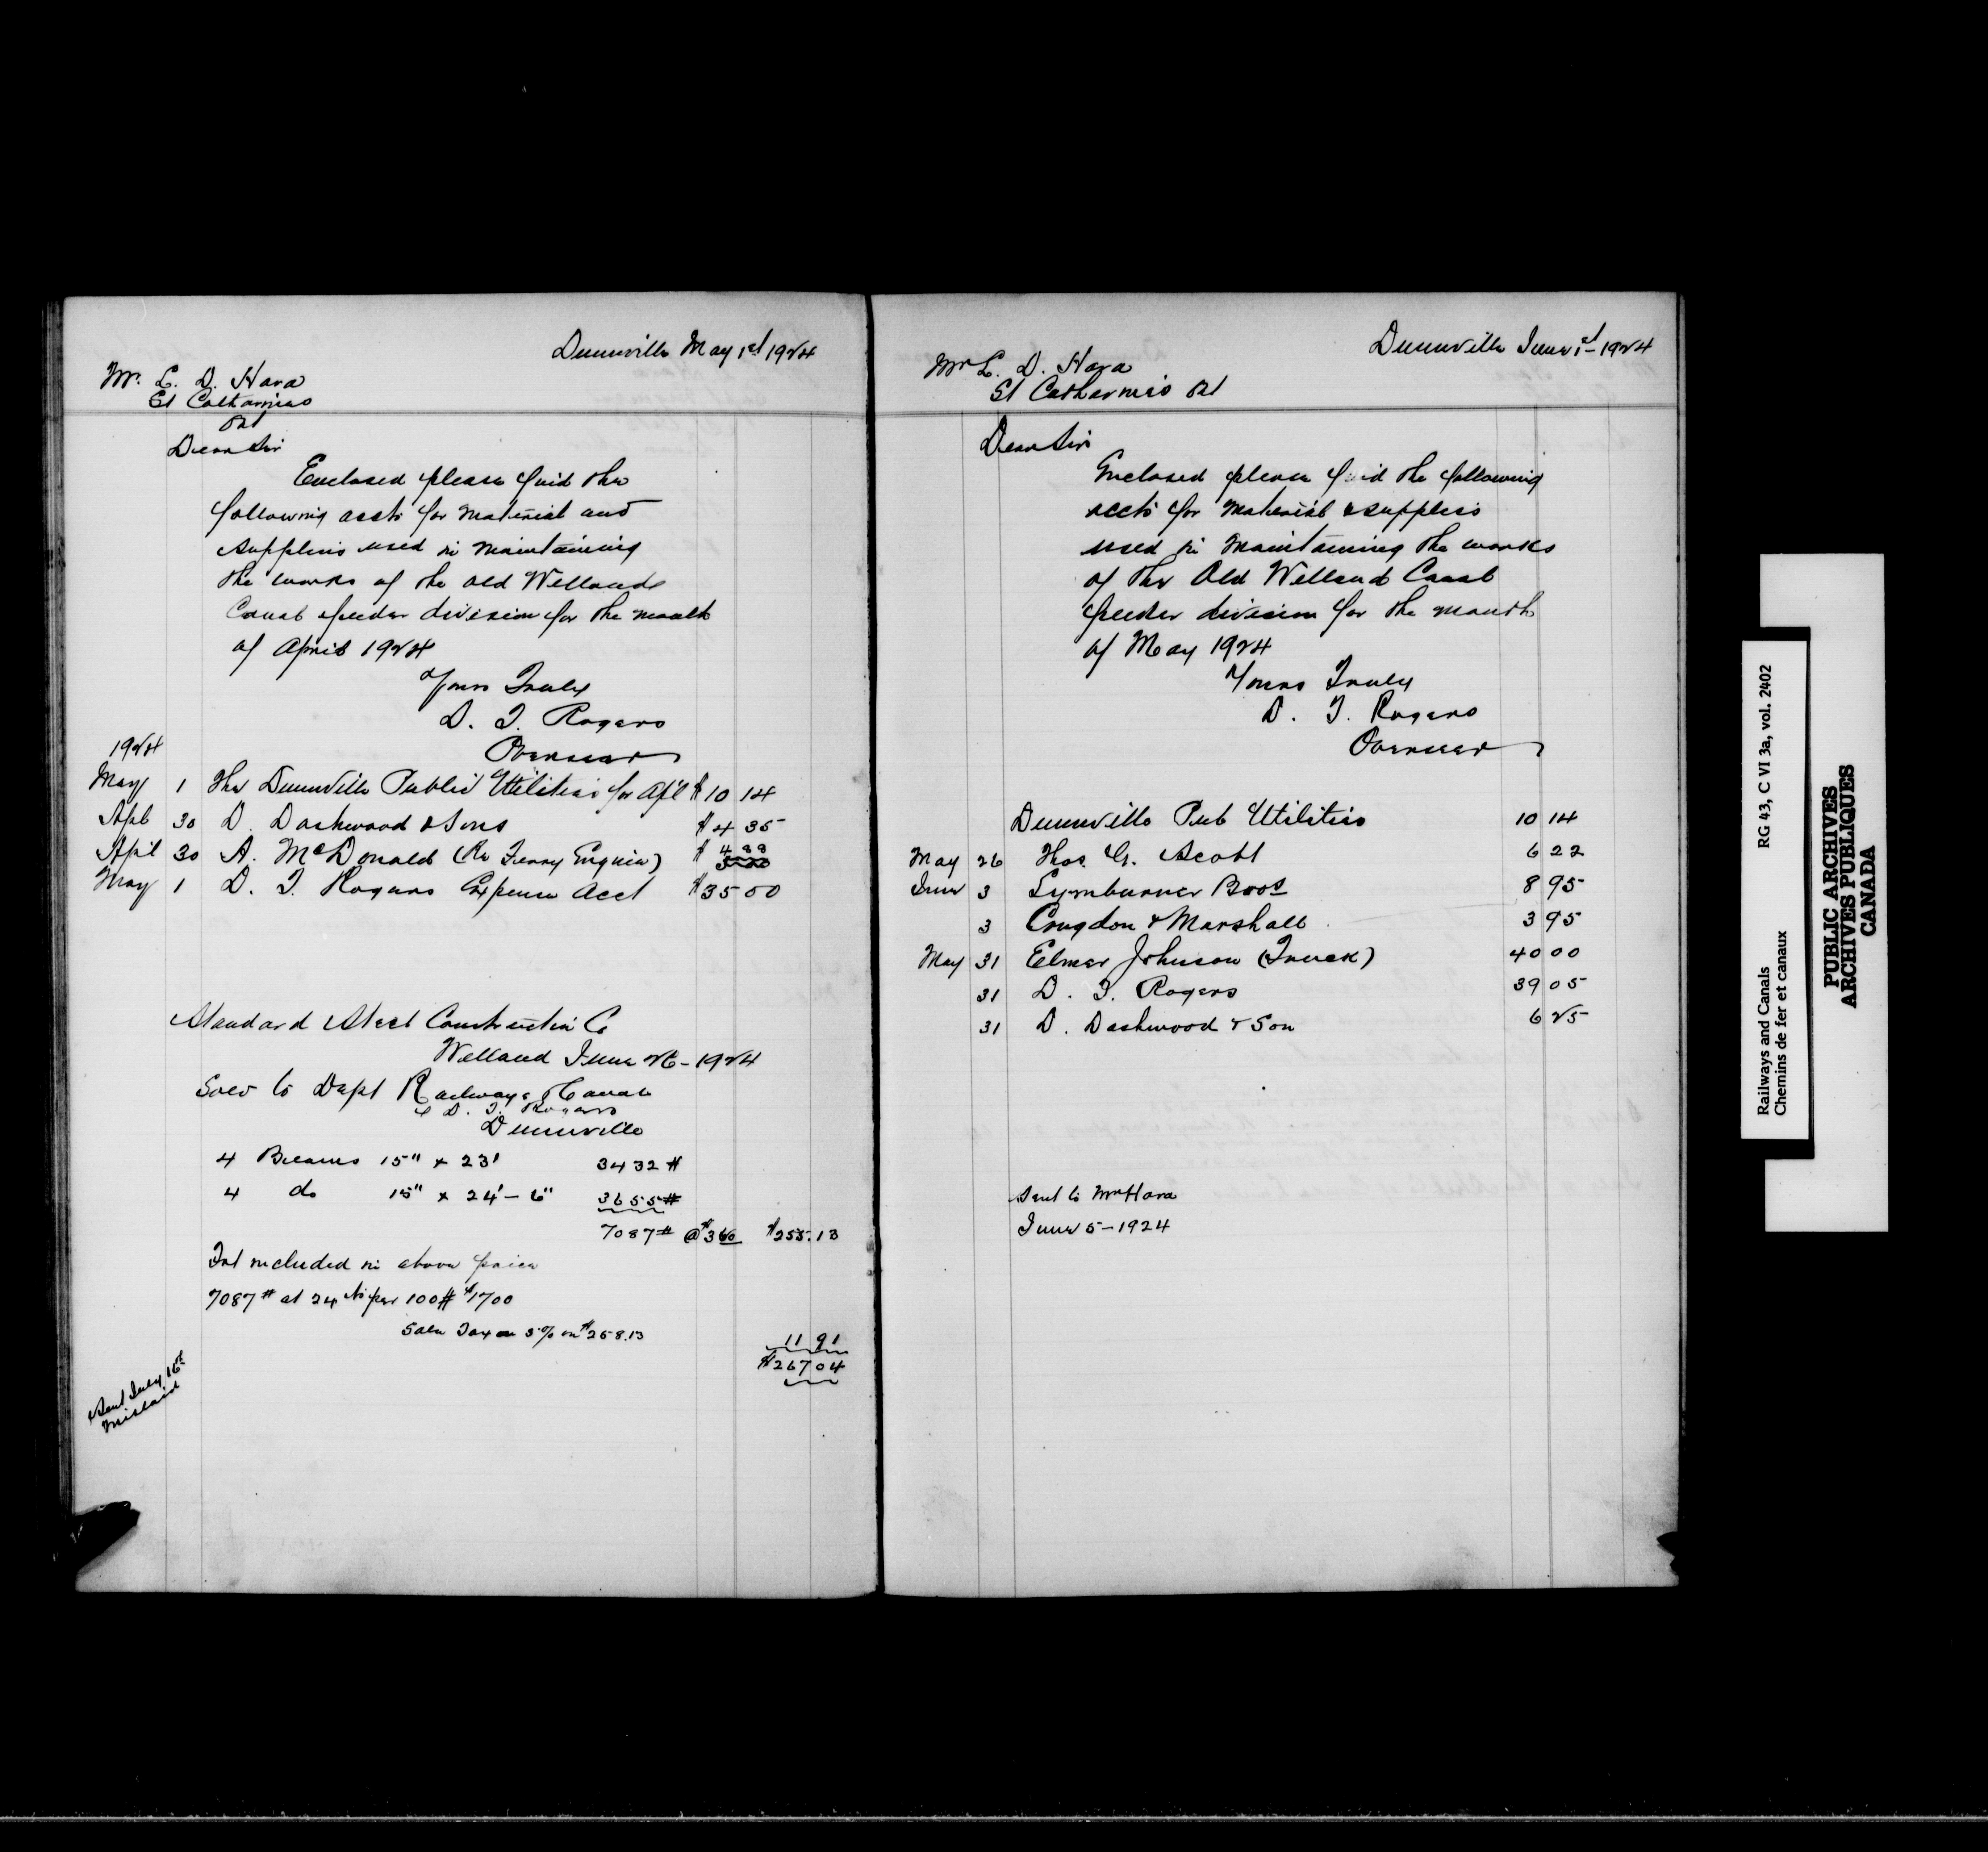 Dunnville May 1st 1924
Mr. L. D. Hara
St Catharines
Ont
Dear Sir
Enclosed please find the
following accts for material and
supplies used in maintaining
the works of the old Welland
Canal feeder division for the month
of April 1924
Yours Truly
D. T. Rogers
Overseer
1924
May 1 The Dunnville Public Utilities for Apl $10 14
Apl 30 D. Dashwood & Sons $4 35
April 30 A. McDonald (Re Ferry Engine) $4
May 1 D. T. Rogers Expense Acct $35 00
Standard Steel Construction Co
Welland June 26 - 1924
Sold to Dept Railways & Canals
c/o D. T. Rogers
Dunnville
4 Beams 15" x 23' 3432 #
4 do 15" x 24' - 6" 3655 #
7087 # @ $3 60 $255.13
Frt included in above price
7087 # at 24 cts per 100# $1700
Sales Tax on 5% on $258.13
11 91
$267 04
Sent July 16th
Mislaid
Dunnville June 1st - 1924
Mr L. D. Hara
St Catharines Ont
Dear Sir
Enclosed please find the following
accts for material & supplies
used in maintaining the works
of the Old Welland Canal
feeder division for the month
of May 1924
Yours Truly
D. T. Rogers
Overseer
Dunnville Pub Utilities 10 14
May 26 Thos. G. Scott 6 22
June 3 Lymburner Bros 8 95
3 Congdon & Marshall 3 95
May 31 Elmer Johnson (Truck) 40 00
31 D. T. Rogers 39 05
31 D. Dashwood & Son 6 25
Sent to Mr Hara
June 5 - 1924
Railways and Canals RG 43, C VI 3a, vol. 2402
Chemins de fer et canaux
PUBLIC ARCHIVES
ARCHIVES PUBLIQUES
CANADA